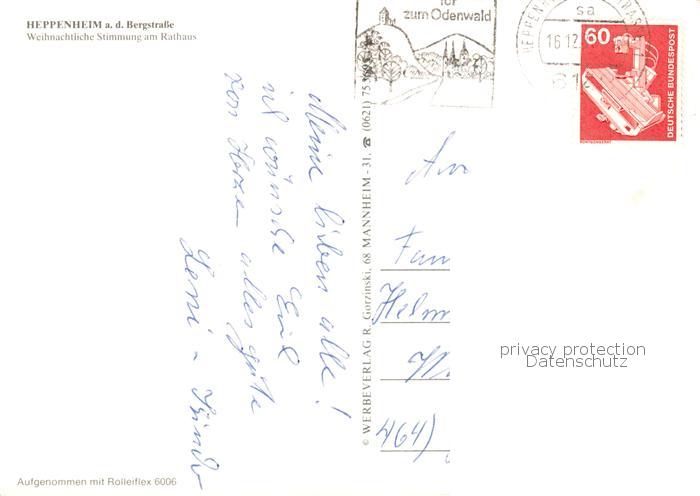 HEPPENHEIM a. d. Bergstraße
Weihnachtliche Stimmung am Rathaus
Tor
zum Odenwald
HEPPENH
STRAS
sa
16.12.
61
60
DEUTSCHE BUNDESPOST
RÖNTGENGERÄT
Meine lieben alle!
ich wünsche Euch
von Herzen alles gute
Leni
© WERBEVERLAG R. Gorzinski, 68 MANNHEIM - 31, ☎ (0621) 75
An
Fam
Helm
464)
privacy protection
Datenschutz
Aufgenommen mit Rolleiflex 6006